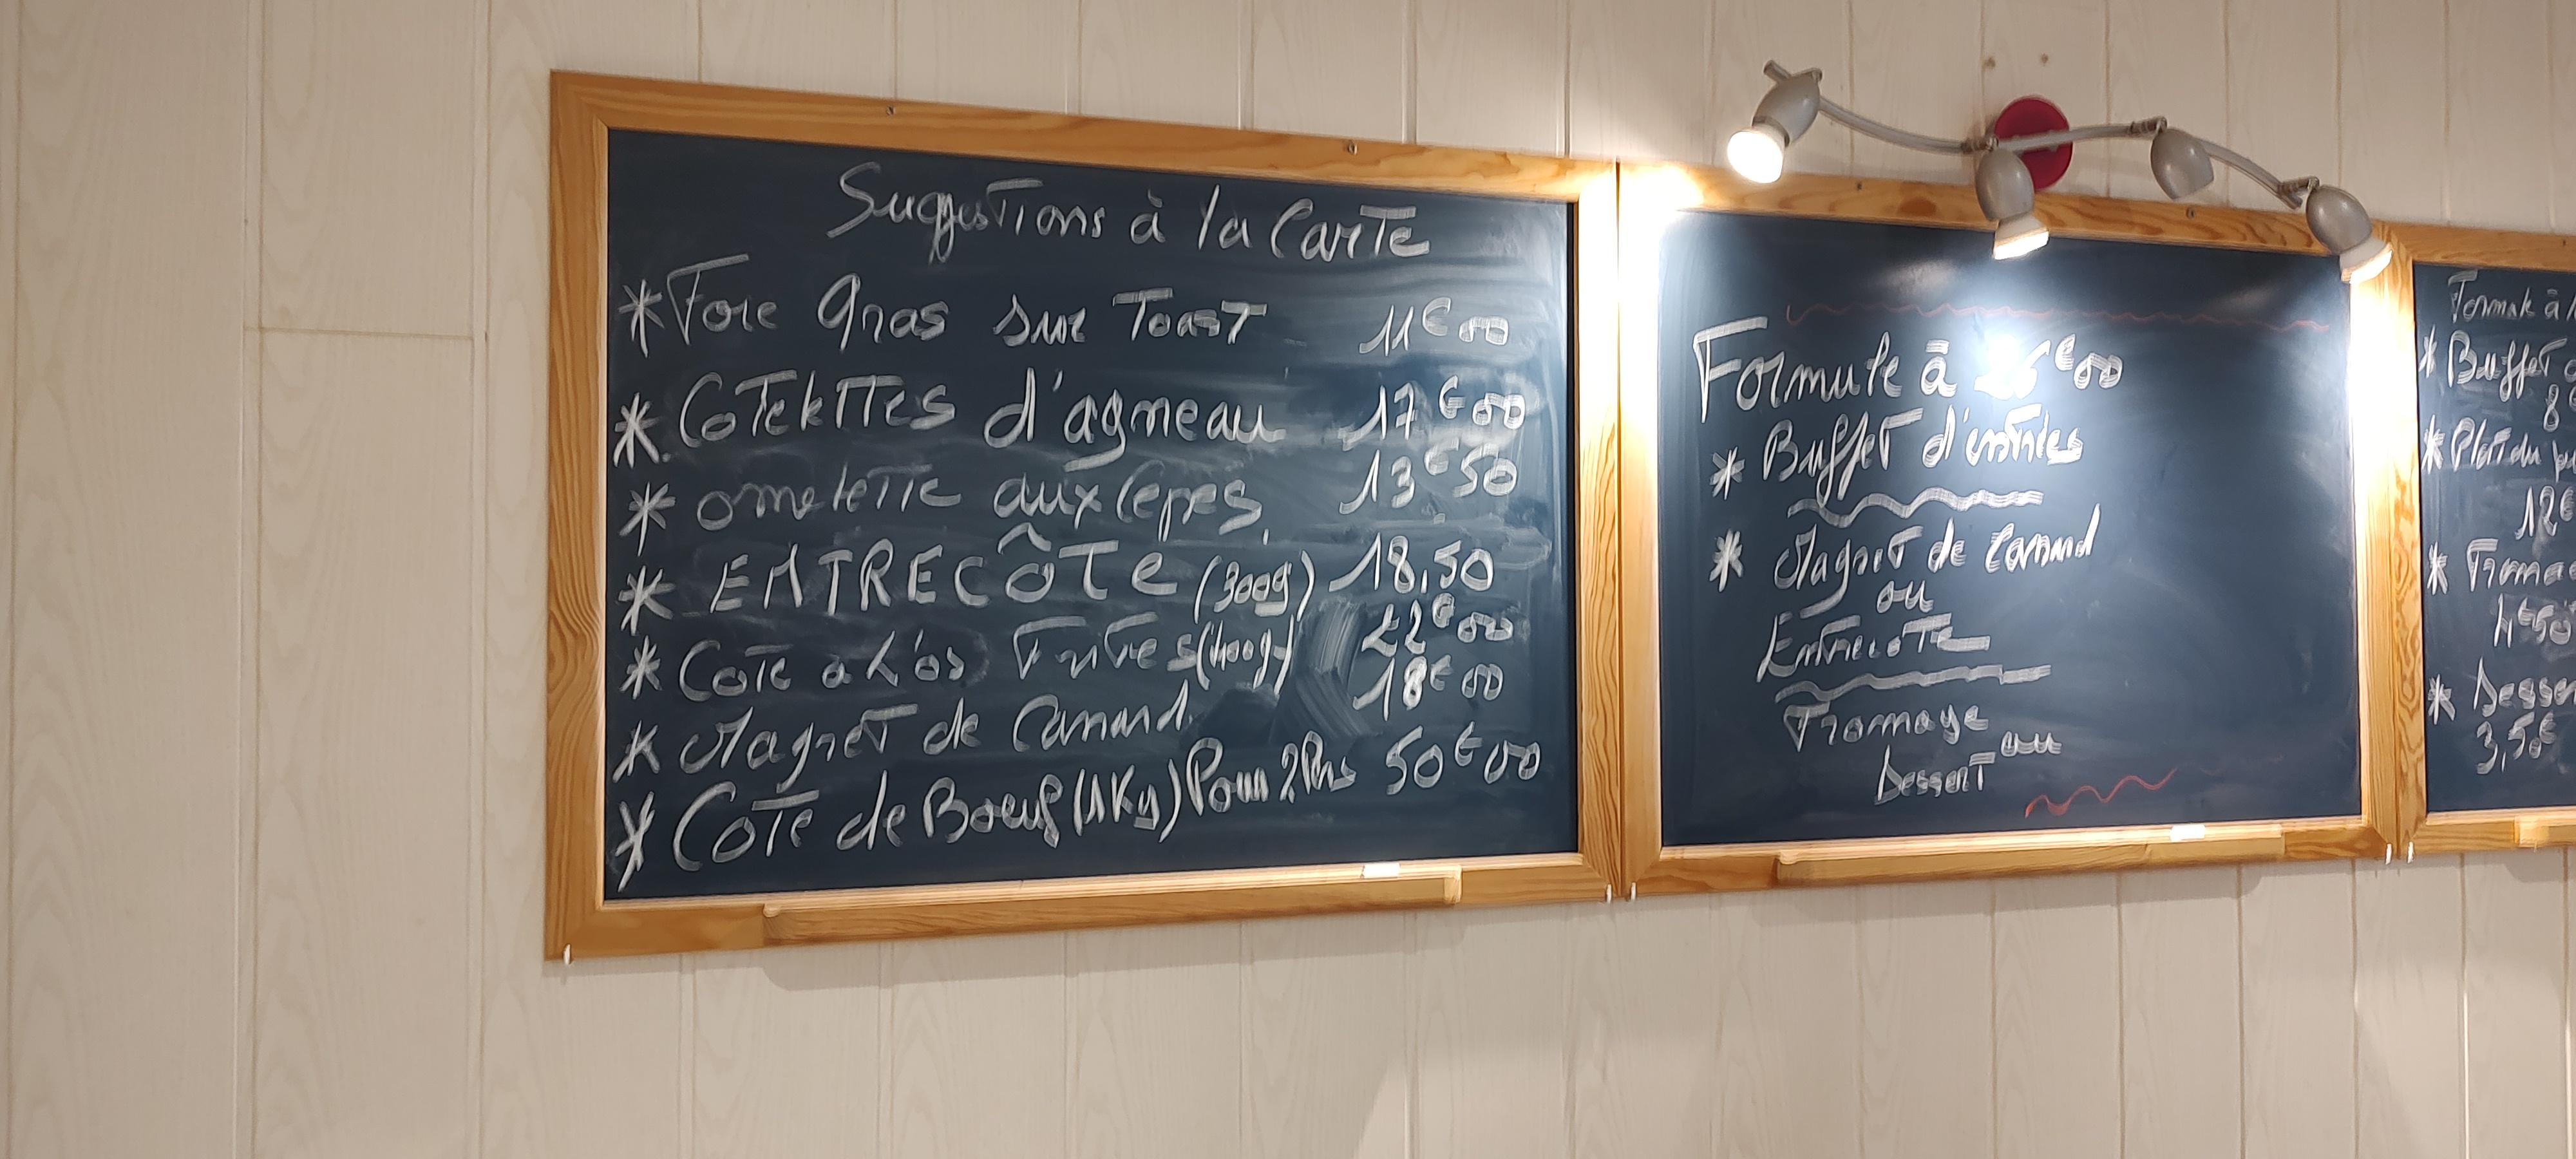 Suggestions à la Carte
* Foie gras sur Toast 11€00
* Cotelettes d'agneau 17€00
* omelette aux Cepes 13€50
* ENTRECÔTE (300g) 18,50
* Cote a L'os Frites (400g) 22€00
* Magret de Canard 18€00
* Cote de Boeuf (1Kg) Pour 2 Prs 50€00
Formule à 26€00
* Buffet d'entrées
* Magret de Canard
ou
Entrecote
Fromage
ou
Dessert
Formule à
* Buffet
8€
* Plat du
12€
* Fromag
4€50
* Desser
3,50€